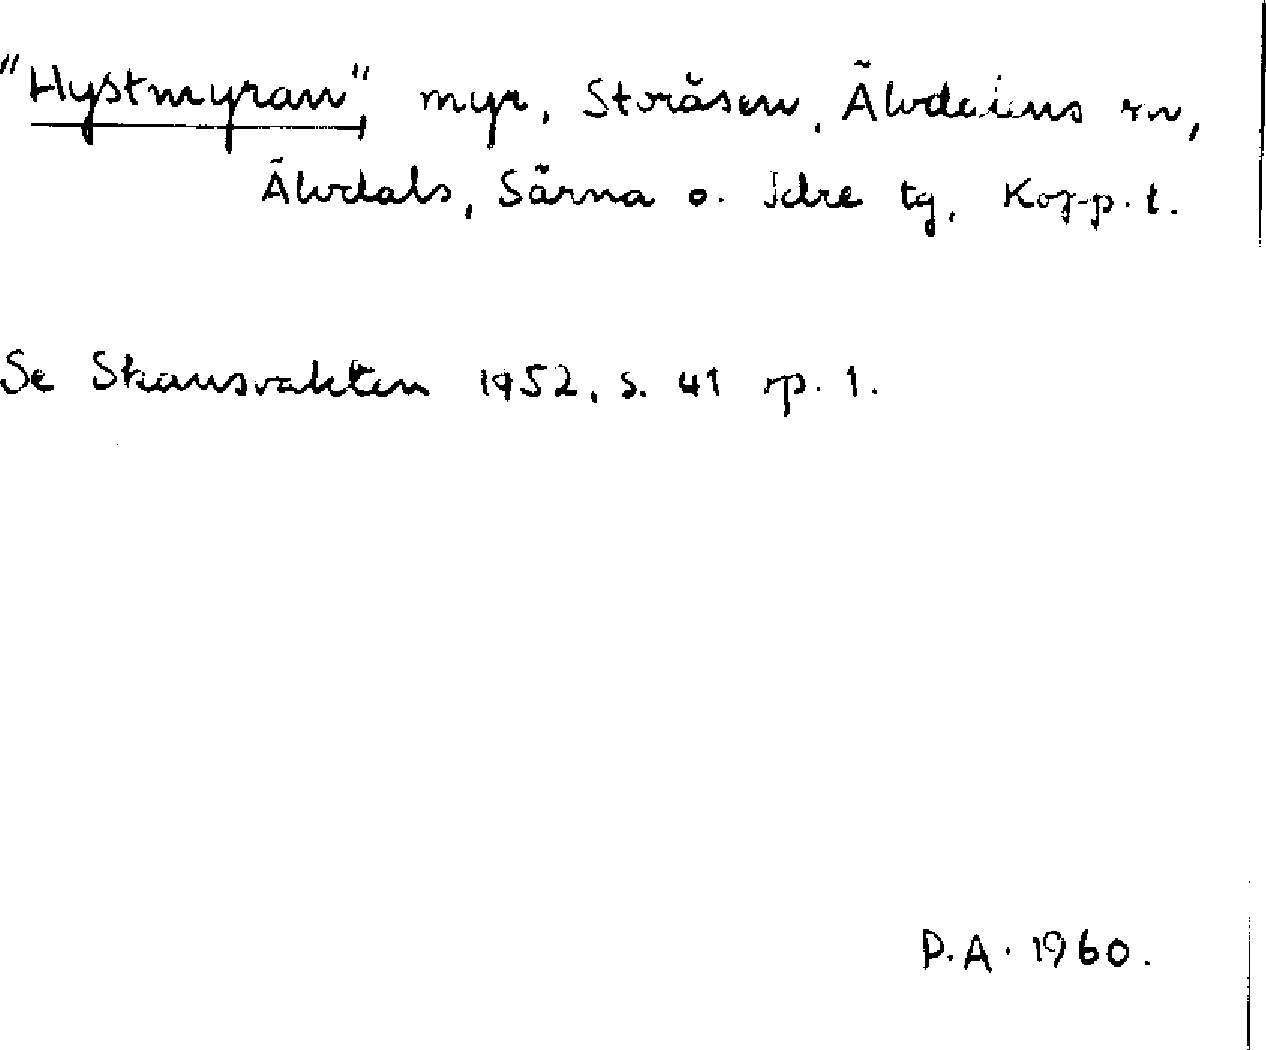 "Hystmyran" myr, Stråsen, Älvdalens sn,
Älvdals, Särna o. Idre tg, Kopp. l.
Se Skansvakten 1952, s. 41 sp. 1.
D.A. 1960.